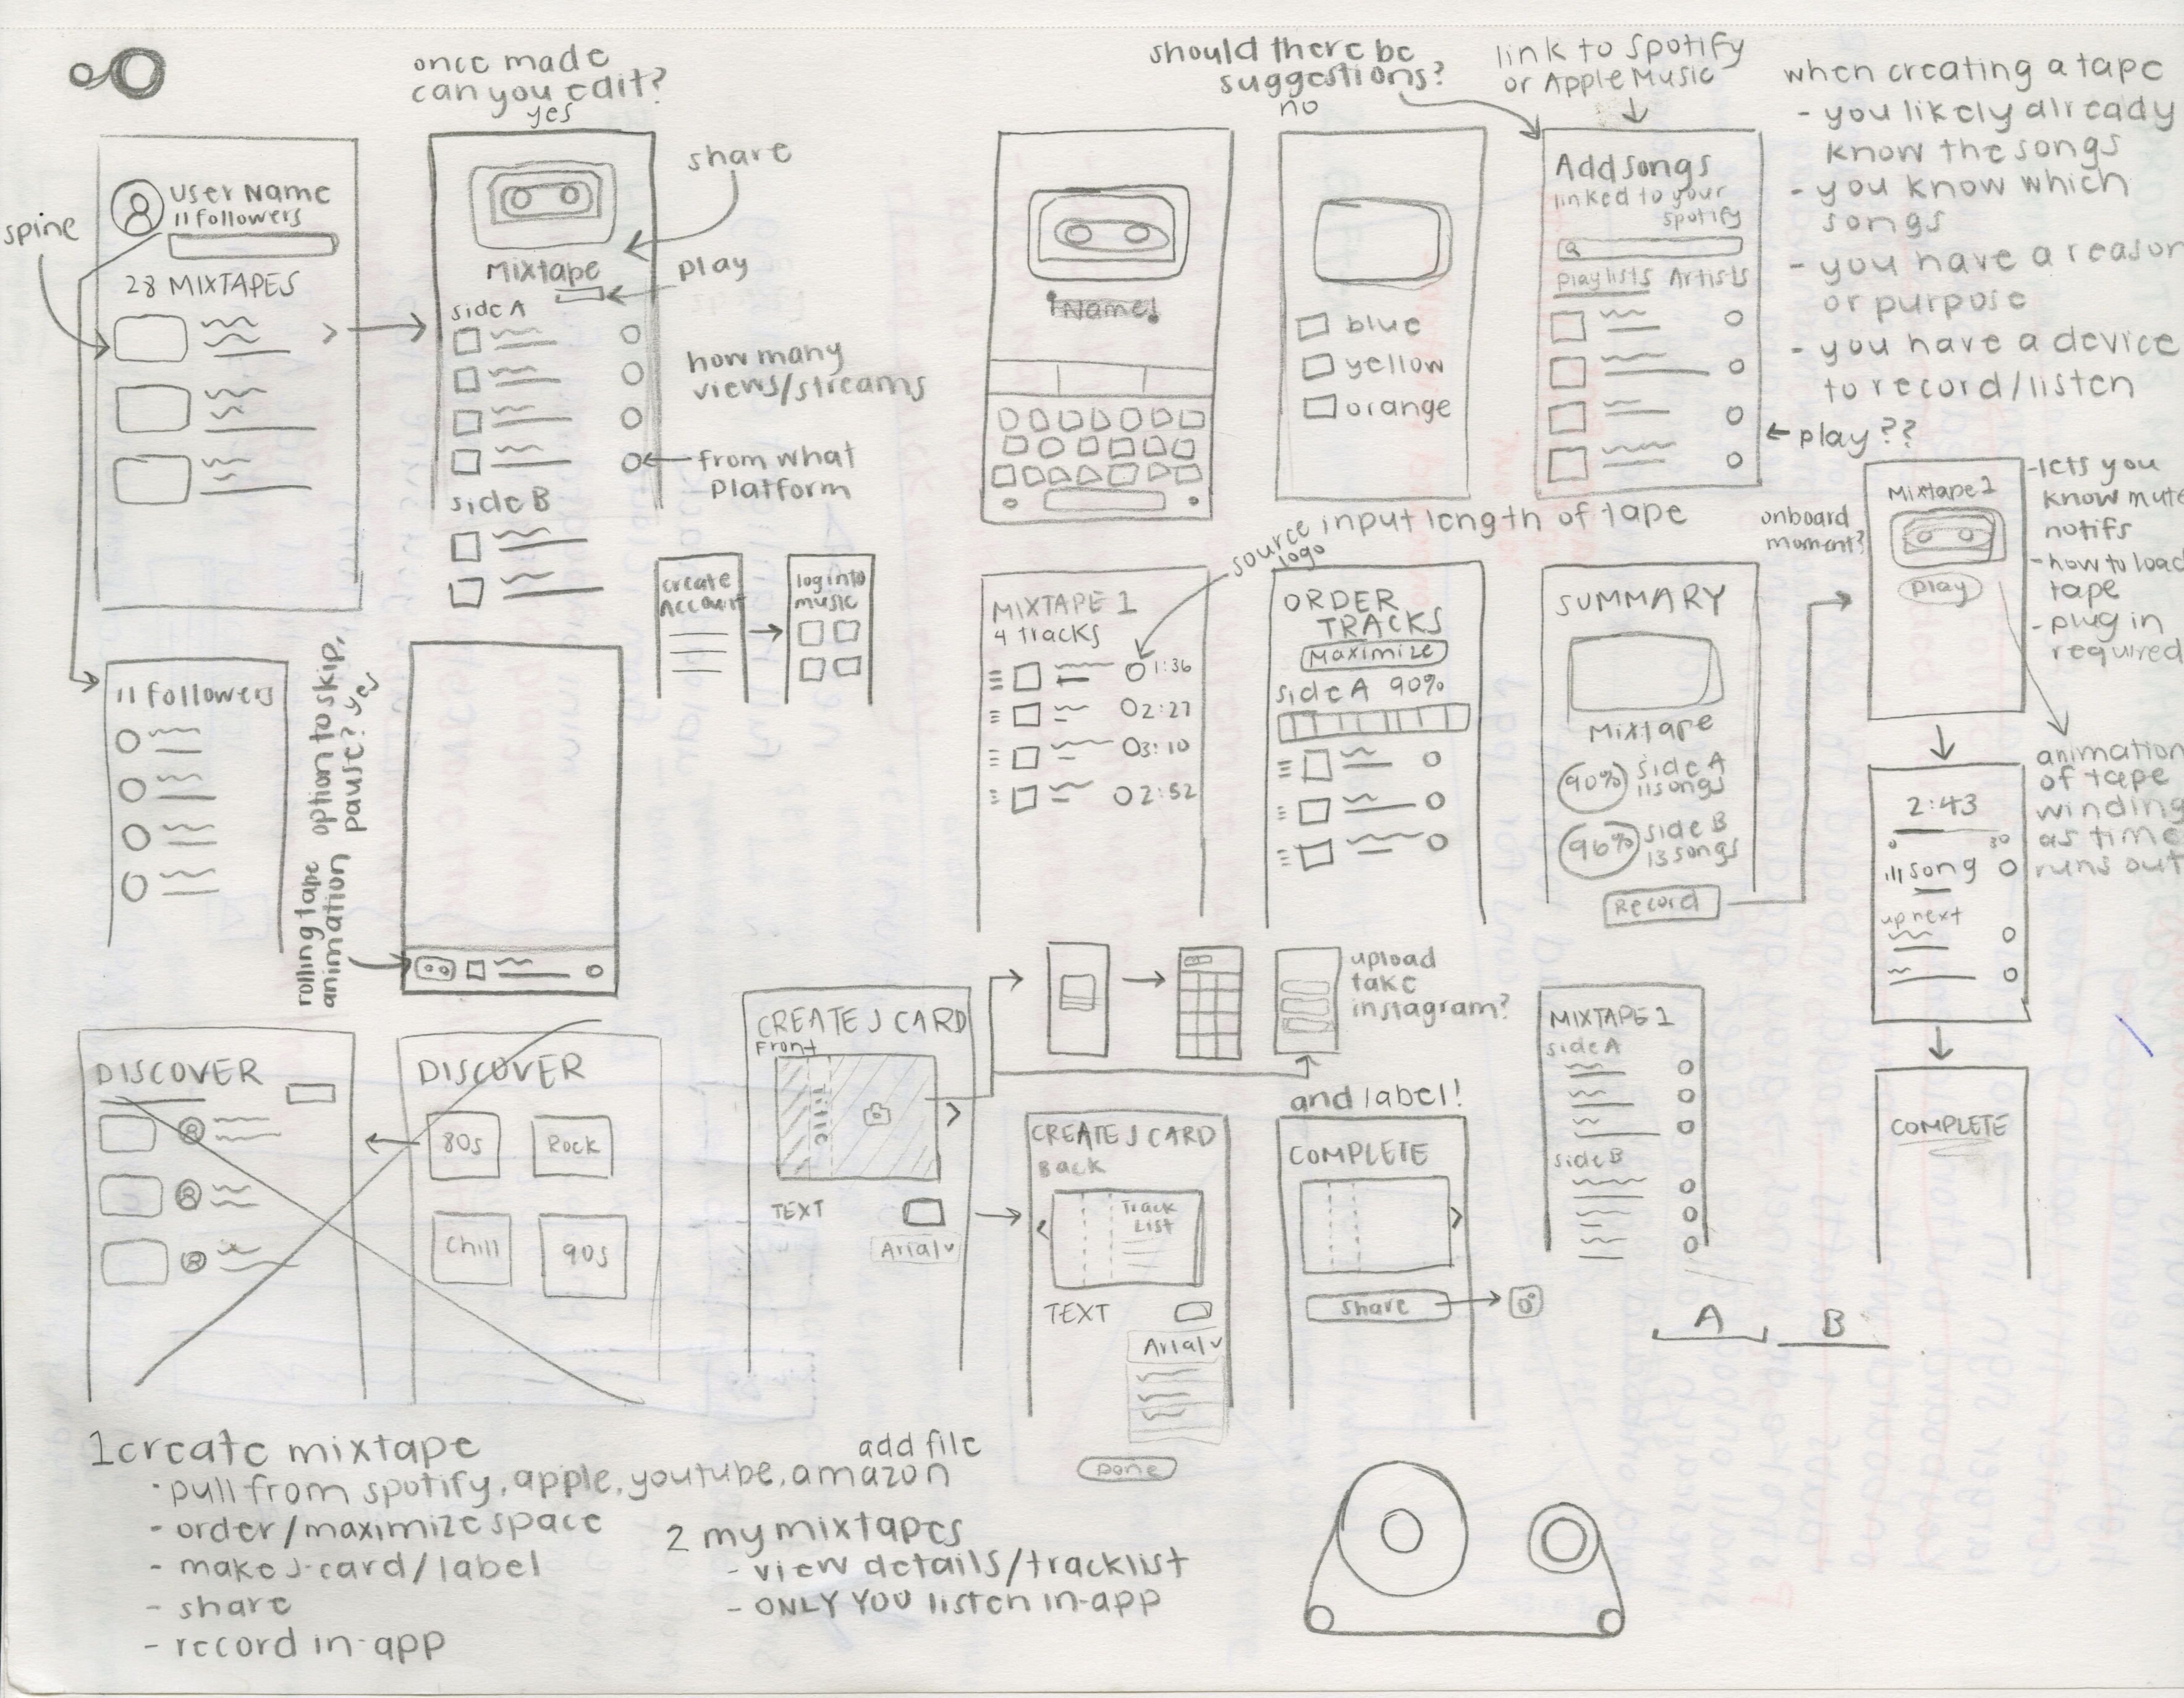 once made
can you edit?
yes
User Name
11 followers
spine
28 MIXTAPES
share
Mixtape
play
side A
how many
views/streams
from what
platform
side B
create
account
log into
music
11 followers
option to skip,
pause? yes
rolling tape
animation
DISCOVER
DISCOVER
80s
Rock
Chill
90s
should there be
suggestions?
no
link to spotify
or Apple Music
Name!
blue
yellow
orange
Add songs
linked to your
spotify
playlists Artists
play??
when creating a tape
- you likely already
know the songs
- you know which
songs
- you have a reason
or purpose
- you have a device
to record/listen
input length of tape
source
logo
MIXTAPE 1
4 tracks
1:36
2:27
3:10
2:52
ORDER
TRACKS
Maximize
side A 90%
SUMMARY
Mixtape
90% side A
11 songs
96% side B
13 songs
Record
onboard
moment?
Mixtape 1
play
- lets you
know mute
notifs
- how to load
tape
- plug in
required
animation
of tape
winding
as time
runs out
2:43
0 30
song
up next
COMPLETE
CREATE J CARD
Front
Title
TEXT
Arial
upload
take
instagram?
CREATE J CARD
Back
Track
List
TEXT
Arial
Done
and label!
COMPLETE
share
MIXTAPE 1
side A
side B
A B
1 create mixtape
add file
· pull from spotify, apple, youtube, amazon
- order/maximize space
- make J-card/label
- share
- record in-app
2 my mixtapes
- view details/tracklist
- ONLY YOU listen in-app